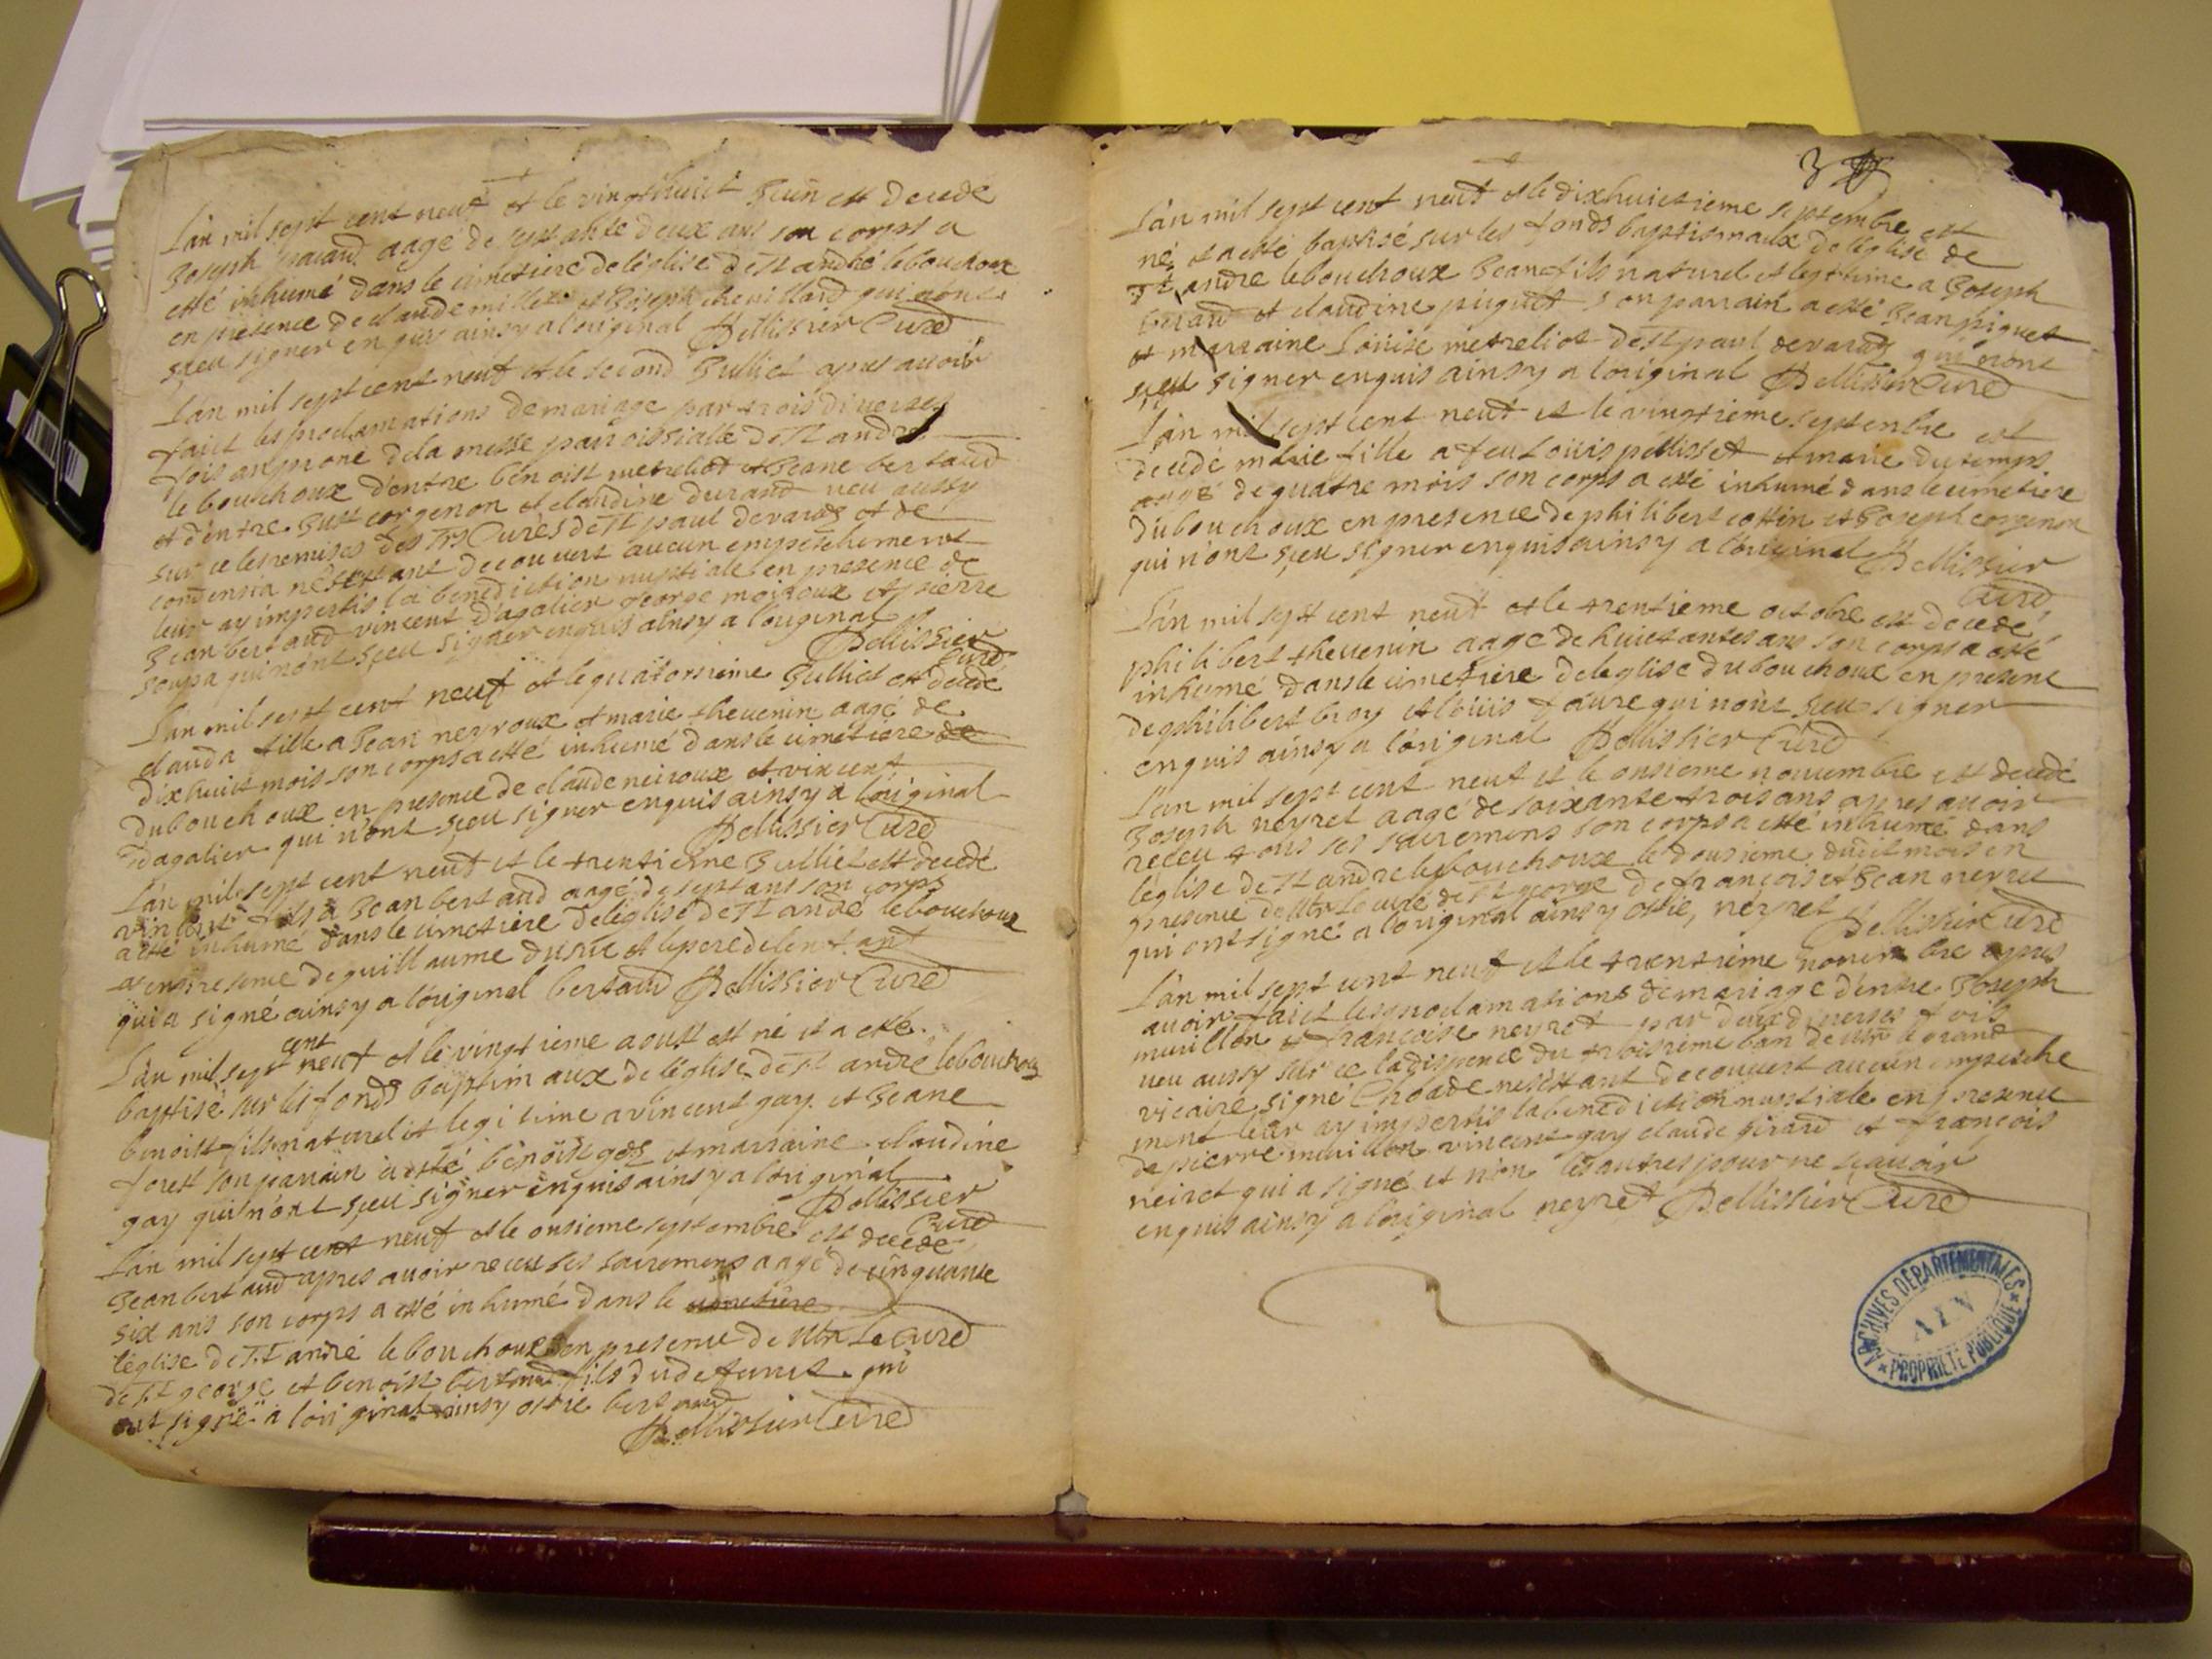 Lan mil sept cent neuf et le vingthuict Juin est decedé
Joseph aagé de septante deux ans son corps a
esté inhumé dans le cimetiere de leglise de St andré lebouchoux
en presence de claude millet et Joseph chevillard qui nont
sceu signer enquis ainsy a loriginal Pellissier Curé
Lan mil sept cent neuf et le second Julliet apres avoir
faict les proclamations de mariage par trois diverses
fois au prone de la messe parroissialle de St andré
le bouchoux dentre benoist metreliot et Jeane bertaud
et dentre Just corgenon et claudine durand veu aussy
sur ce les remises des Srs Curés de St paul devarax et de
condensia ne sestant decouvert aucun empeschement
leur ay imperti la benediction nuptiale en presence de
Jean bertaud vincent dagalier george moiroux et pierre
soupa qui nont sceu signer enquis ainsy a loriginal
Pellissier
Curé
Lan mil sept cent neuf et le quatorsieme Julliet est decedé
clauda fille a Jean neyroux et marie thevenin aagé de
dixhuict mois son corps a esté inhumé dans le cimetiere de
dubouchoux en presence de claude neiroux et vincent
dagalier qui n'ont sceu signer enquis ainsy a loriginal
Pellissier Curé
Lan mil sept cent neuf et le trentieme Julliet est decedé
vincent fils a Jean bertaud aagé de sept ans son corps
a esté inhumé dans le cimetiere deleglise de St andré lebouchoux
en presence de guillaume et le pere de lenfant
qui a signé ainsy a loriginal bertaud Pellissier Curé
Lan mil sept cent neuf et le vingtieme aoust est né et a esté
baptisé sur les fonds baptismaux de leglise de St andré lebouchoux
benoist fils naturel et legitime a vincent gay et Jeane
forest son parrain a esté benoist et marraine claudine
gay qui n'ont sceu signer enquis ainsy a loriginal
Pellissier
Curé
Lan mil sept cent neuf et le onsieme septembre est decedé
Jean bertaud apres avoir receu ses sacremens aagé de cinquante
six ans son corps a esté inhumé dans le cimetiere
leglise de St andré le bouchoux en presence de Mr Le Curé
de St george et benoist bertaud fils du defunct qui
ont signé a loriginal ainsy bertaud
Pellissier Curé
3
Lan mil sept cent neuf et le dixhuictieme septembre est
né et a esté baptisé sur les fonds baptismaux de leglise de
St andre lebouchoux Jean fils naturel et legitime a Joseph
beraud et claudine piquet son parrain a esté Jean piquet
et marraine Louise metreliot de St paul devarax qui nont
sceu signer enquis ainsy a loriginal Pellissier Curé
Lan mil sept cent neuf et le vingtieme septembre est
decedé marie fille a feu Louis pellisset et marie dutemps
aagé de quatre mois son corps a esté inhumé dans le cimetiere
dubouchoux en presence de philibert cottin et Joseph corgenon
qui nont sceu signer enquis ainsy a loriginal Pellissier
Curé
Lan mil sept cent neuf et le trentieme octobre est decedé
philibert thevenin aagé de huictantes ans son corps a esté
inhumé dans le cimetiere deleglise dubouchoux en presence
de philibert broy et louis faure qui nont sceu signer
enquis ainsy a loriginal Pellissier Curé
Lan mil sept cent neuf et le onsieme novembre est decedé
Joseph neyret aagé de soixante trois ans apres avoir
receu tous ses sacremens son corps a esté inhumé dans
leglise de St andre lebouchoux le dousieme dudit mois en
presence de Mr Le curé de St george de francois et Jean neyret
qui ont signé a loriginal ainsy neyret Pellissier Curé
Lan mil sept cent neuf et le trentieme novembre apres
avoir faict les proclamations de mariage dentre Joseph
muvillon et francoise neyret par deux diverses fois
veu aussy sur ce la dispence du troisieme ban de Mr le grand
vicaire signé Choade ne sestant decouvert aucun empesche
ment leur ay imperti la benediction nuptiale en presence
de pierre muvillon vincent gay claude girard et francois
neiret qui a signé et non les autres pour ne scavoir
enquis ainsy a loriginal neyret Pellissier Curé
ARCHIVES DÉPARTEMENTALES
AIN
* PROPRIÉTÉ PUBLIQUE *